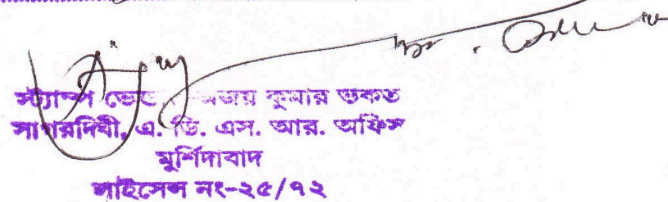 স্ট্যাম্প ভেন্ডার অজয় কুমার ভকত
সাগরদিঘী, এ. ডি. এস. আর. অফিস
মুর্শিদাবাদ
লাইসেন্স নং-২৫/৭২